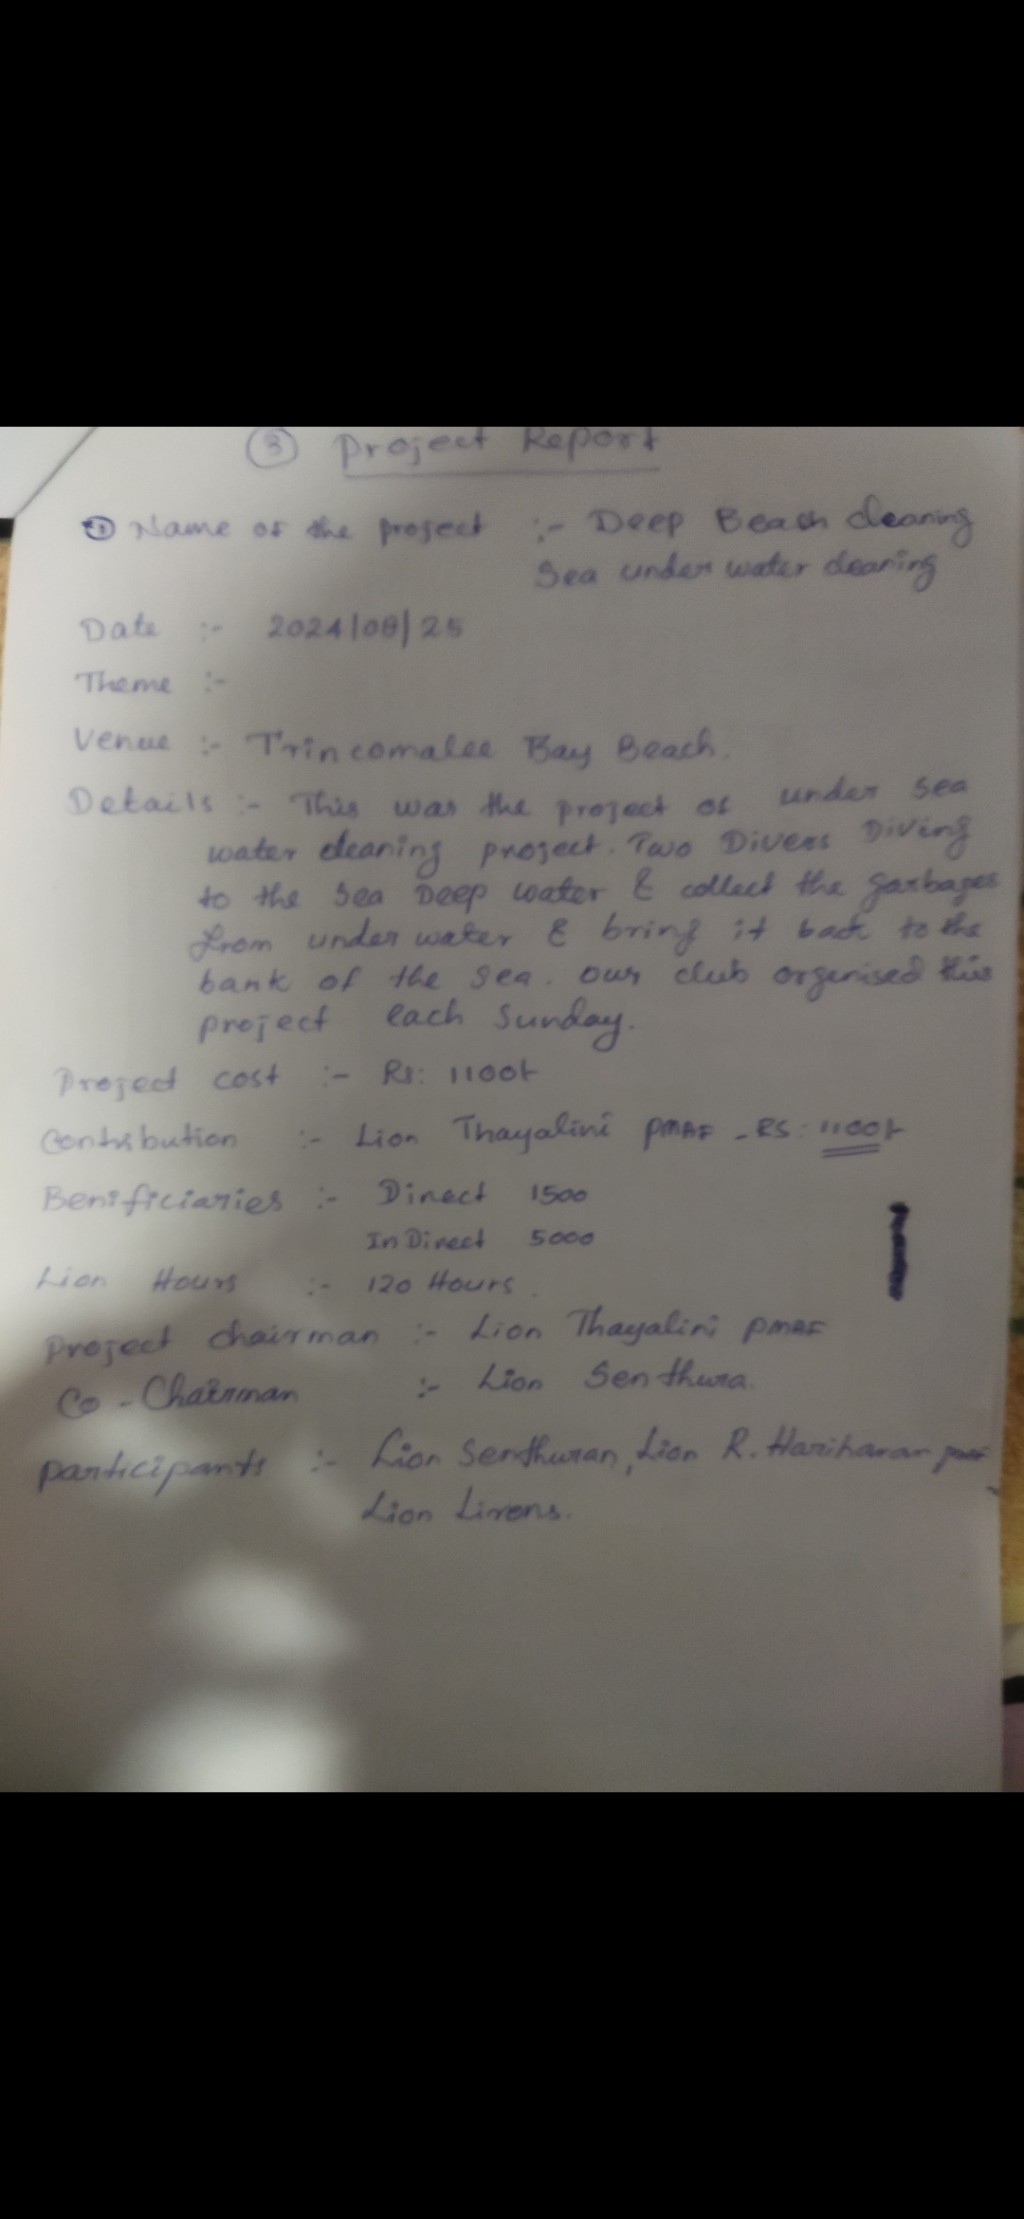 ③ Project Report
③ Name of the project :- Deep Beach cleaning
Sea under water cleaning
Date :- 2024/08/25
Theme :-
Venue :- Trincomalee Bay Beach.
Details :- This was the project of under sea
water cleaning project. Two Divers Diving
to the Sea Deep water & collect the garbages
from under water & bring it back to the
bank of the sea. our club organised this
project each Sunday.
Project cost :- Rs: 1100/-
Contribution :- Lion Thayalini PMAF - RS: 1100/-
Benificiaries :- Direct 1500
InDirect 5000
Lion Hours :- 120 Hours.
Project chairman :- Lion Thayalini PMAF
Co-Chairman :- Lion Senthura.
participants :- Lion Senthuran, Lion R. Hariharan
Lion Lirens.